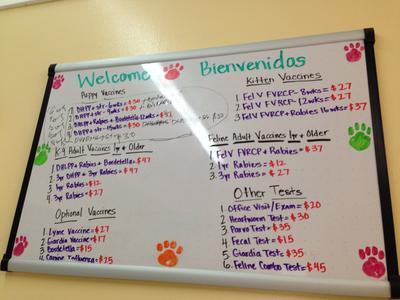 Welcome
Bienvenidos
Puppy Vaccines
1. DHPP + str - 6wks = $30
2. DHPP + str - 9wks = $30
3. DHPP + Rabies + Bordetella 12wks = $
4. DHPP + str - 15wks = $30
K-9 Adult Vaccines 1yr + Older
1. DHPP + Rabies + Bordetella = $47
2. 3yr DHPP + 3yr Rabies = $97
3. 1yr Rabies = $12
4. 3yr Rabies = $27
Optional Vaccines
1. Lyme Vaccine = $27
2. Giardia Vaccine = $17
3. Bordetella = $15
4. Canine Influenza = $25
Kitten Vaccines
1 FelV FVRCP - 8wks = $27
2 FelV FVRCP - 12wks = $27
3 FelV FVRCP + Rabies 16wks = $37
Feline Adult Vaccines 1yr + Older
1 FelV FVRCP + Rabies = $37
2. 1yr Rabies = $12
3. 3yr Rabies = $27
Other Tests
1. Office Visit/Exam = $20
2. Heartworm Test = $30
3. Parvo Test = $35
4. Fecal Test = $15
5. Giardia Test = $35
6. Feline Combo Test = $45